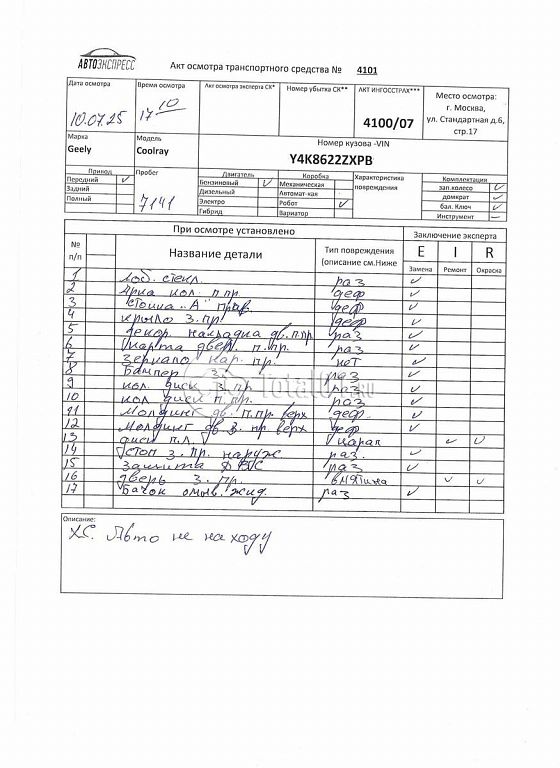 АВТОЭКСПРЕСС
Акт осмотра транспортного средства № 4101
Дата осмотра Время осмотра Акт осмотра эксперта СК* Номер убытка СК** АКТ ИНГОССТРАХ*** Место осмотра:
10.07.25 17 10 4100/07 г. Москва,
ул. Стандартная д.6,
стр.17
Марка Модель Номер кузова -VIN
Geely Coolray Y4K8622ZXPB
Привод Пробег Двигатель Коробка Характеристика повреждения Комплектации
Передний ✓ 7141 Бензиновый ✓ Механическая зап.колесо ✓
Задний Дизельный Автомат-кая домкрат ✓
Полный Электро Робот ✓ бал. Ключ ✓
Гибрид Вариатор Инструмент –
При осмотре установлено Заключение эксперта
№ п/п Название детали Тип повреждения (описание см.Ниже E I R
Замена Ремонт Окраска
1 Лоб. стекл. раз ✓
2 Арка кол. п.пр. деф ✓
3 Стойка „А" прав. деф ✓
4 крыло з.пр. деф ✓
5 декор. накладка дв. п.пр раз ✓
6 Карта двер. п.пр. раз ✓
7 Зеркало нар. пр. нет ✓
8 Бампер з. раз ✓
9 кол. диск з.пр раз ✓
10 кол диск п.пр. раз ✓
11 Молдинг дв. п.пр верх деф. ✓
12 Молдинг дв з. пр. верх деф ✓
13 диск п.л. царап ✓ ✓
14 Стоп з. пр. наруж. раз. ✓
15 Защита ДВС раз ✓
16 дверь з. пр. вмятина ✓ ✓
17 Бачок омыв. жид. раз ✓
TotalO .ru
Описание:
Х.С. Авто не на ходу